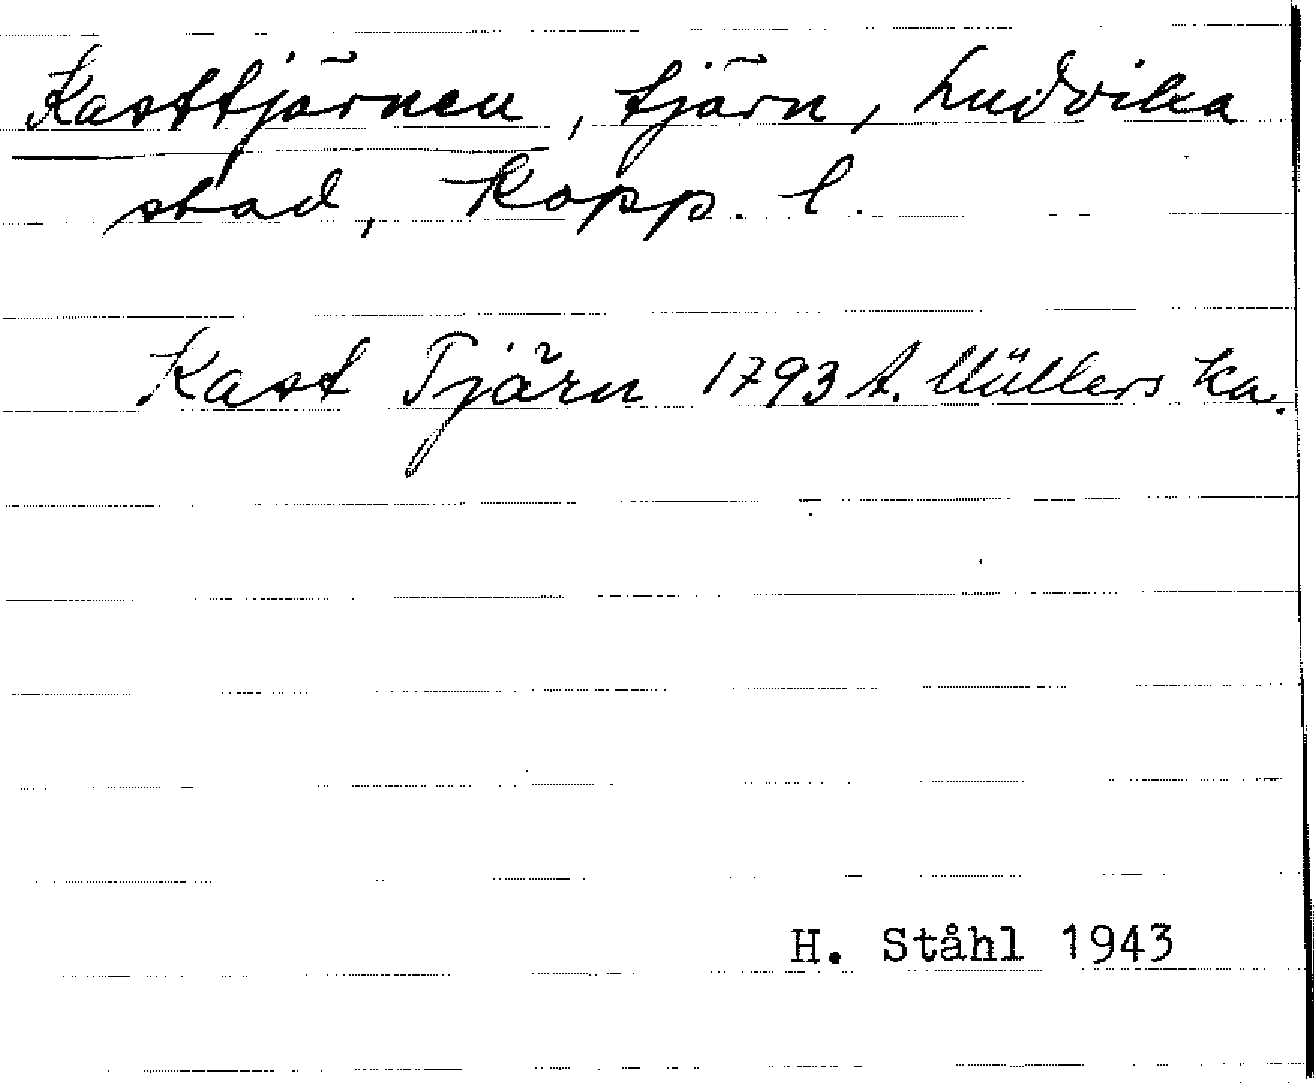 Kasttjärnen, tjärn, Ludvika
stad, Kopp. l.
Kast Tjärn 1793 A. Müllers ka.
H. Ståhl 1943